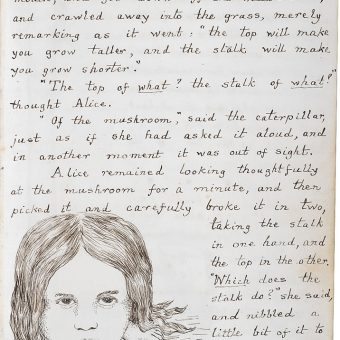 and crawled away into the grass, merely
remarking as it went: "the top will make
you grow taller, and the stalk will make
you grow shorter."
"The top of what? the stalk of what?"
thought Alice.
"Of the mushroom," said the caterpillar,
just as if she had asked it aloud, and
in another moment it was out of sight.
Alice remained looking thoughtfully
at the mushroom for a minute, and then
picked it and carefully broke it in two,
taking the stalk
in one hand, and
the top in the other.
"Which does the
stalk do?" she said,
and nibbled a
little bit of it to